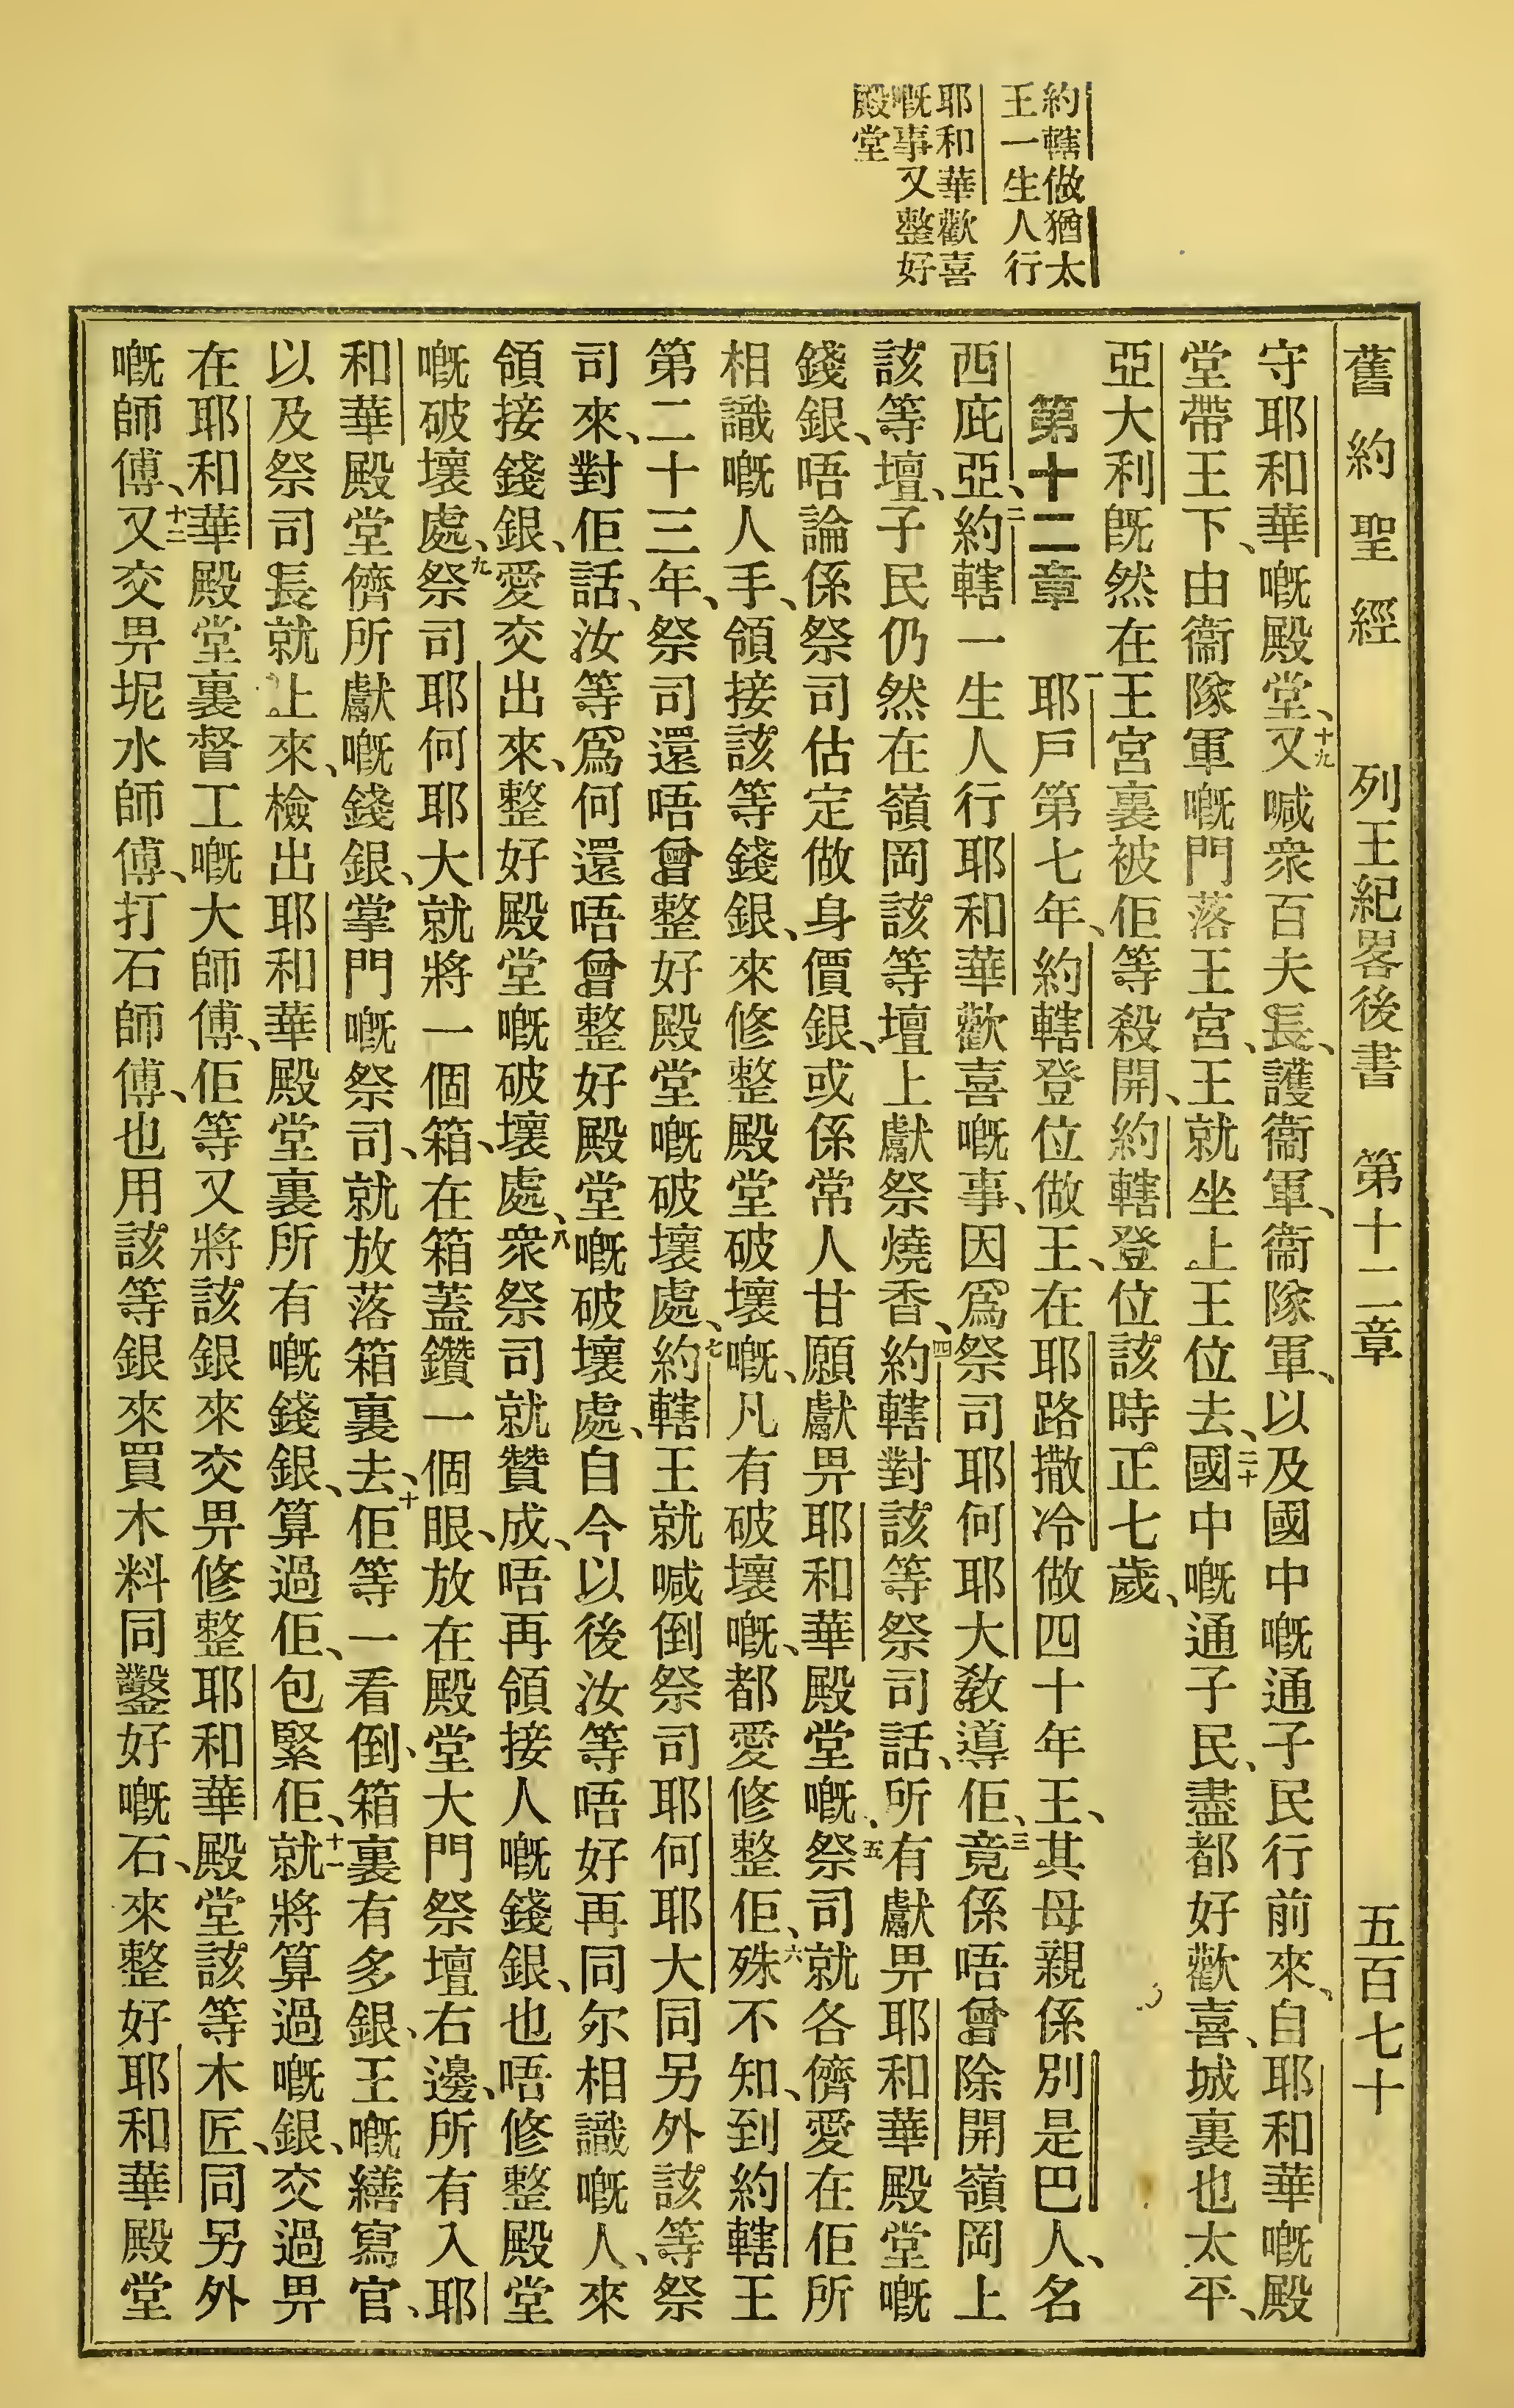 約轄做猶太
王一生人行
耶和華歡喜
嘅事又整好
殿堂
舊約聖經 列王紀畧後書 第十二章 五百七十
守耶和華嘅殿堂、十九又喊衆百夫長、護衞軍、衞隊軍、以及國中嘅通子民行前來、自耶和華嘅殿
堂帶王下、由衞隊軍嘅門落王宮、王就坐上王位去、二十國中嘅通子民、盡都好歡喜、城裏也太平、
亞大利旣然在王宮裏被佢等殺開、約轄登位該時正七歲、
第十二章 一耶戶第七年、約轄登位做王、在耶路撒冷做四十年王、其母親係別是巴人、名
西庇亞、二約轄一生人行耶和華歡喜嘅事、因爲祭司耶何耶大教導佢、三竟係唔曾除開嶺岡上
該等壇、子民仍然在嶺岡該等壇上獻祭燒香、四約轄對該等祭司話、所有獻畀耶和華殿堂嘅
錢銀、唔論係祭司估定做身價銀、或係常人甘願獻畀耶和華殿堂嘅、五祭司就各儕愛在佢所
相識嘅人手、領接該等錢銀、來修整殿堂破壞嘅、凡有破壞嘅、都愛修整佢、六殊不知、到約轄王
第二十三年、祭司還唔曾整好殿堂嘅破壞處、七約轄王就喊倒祭司耶何耶大同另外該等祭
司來、對佢話、汝等爲何還唔曾整好殿堂嘅破壞處、自今以後汝等唔好再同尔相識嘅人、來
領接錢銀、愛交出來、整好殿堂嘅破壞處、八衆祭司就贊成、唔再領接人嘅錢銀、也唔修整殿堂
嘅破壞處、九祭司耶何耶大就將一個箱、在箱蓋鑽一個眼、放在殿堂大門祭壇右邊、所有入耶
和華殿堂儕所獻嘅錢銀、掌門嘅祭司、就放落箱裏去、十佢等一看倒、箱裏有多銀、王嘅繕寫官、
以及祭司長就上來、檢出耶和華殿堂裏所有嘅錢銀、算過佢、包緊佢、十一就將算過嘅銀、交過畀
在耶和華殿堂裏督工嘅大師傅、佢等又將該銀來交畀修整耶和華殿堂該等木匠、同另外
嘅師傅、十二又交畀坭水師傅、打石師傅、也用該等銀來買木料同鑿好嘅石、來整好耶和華殿堂